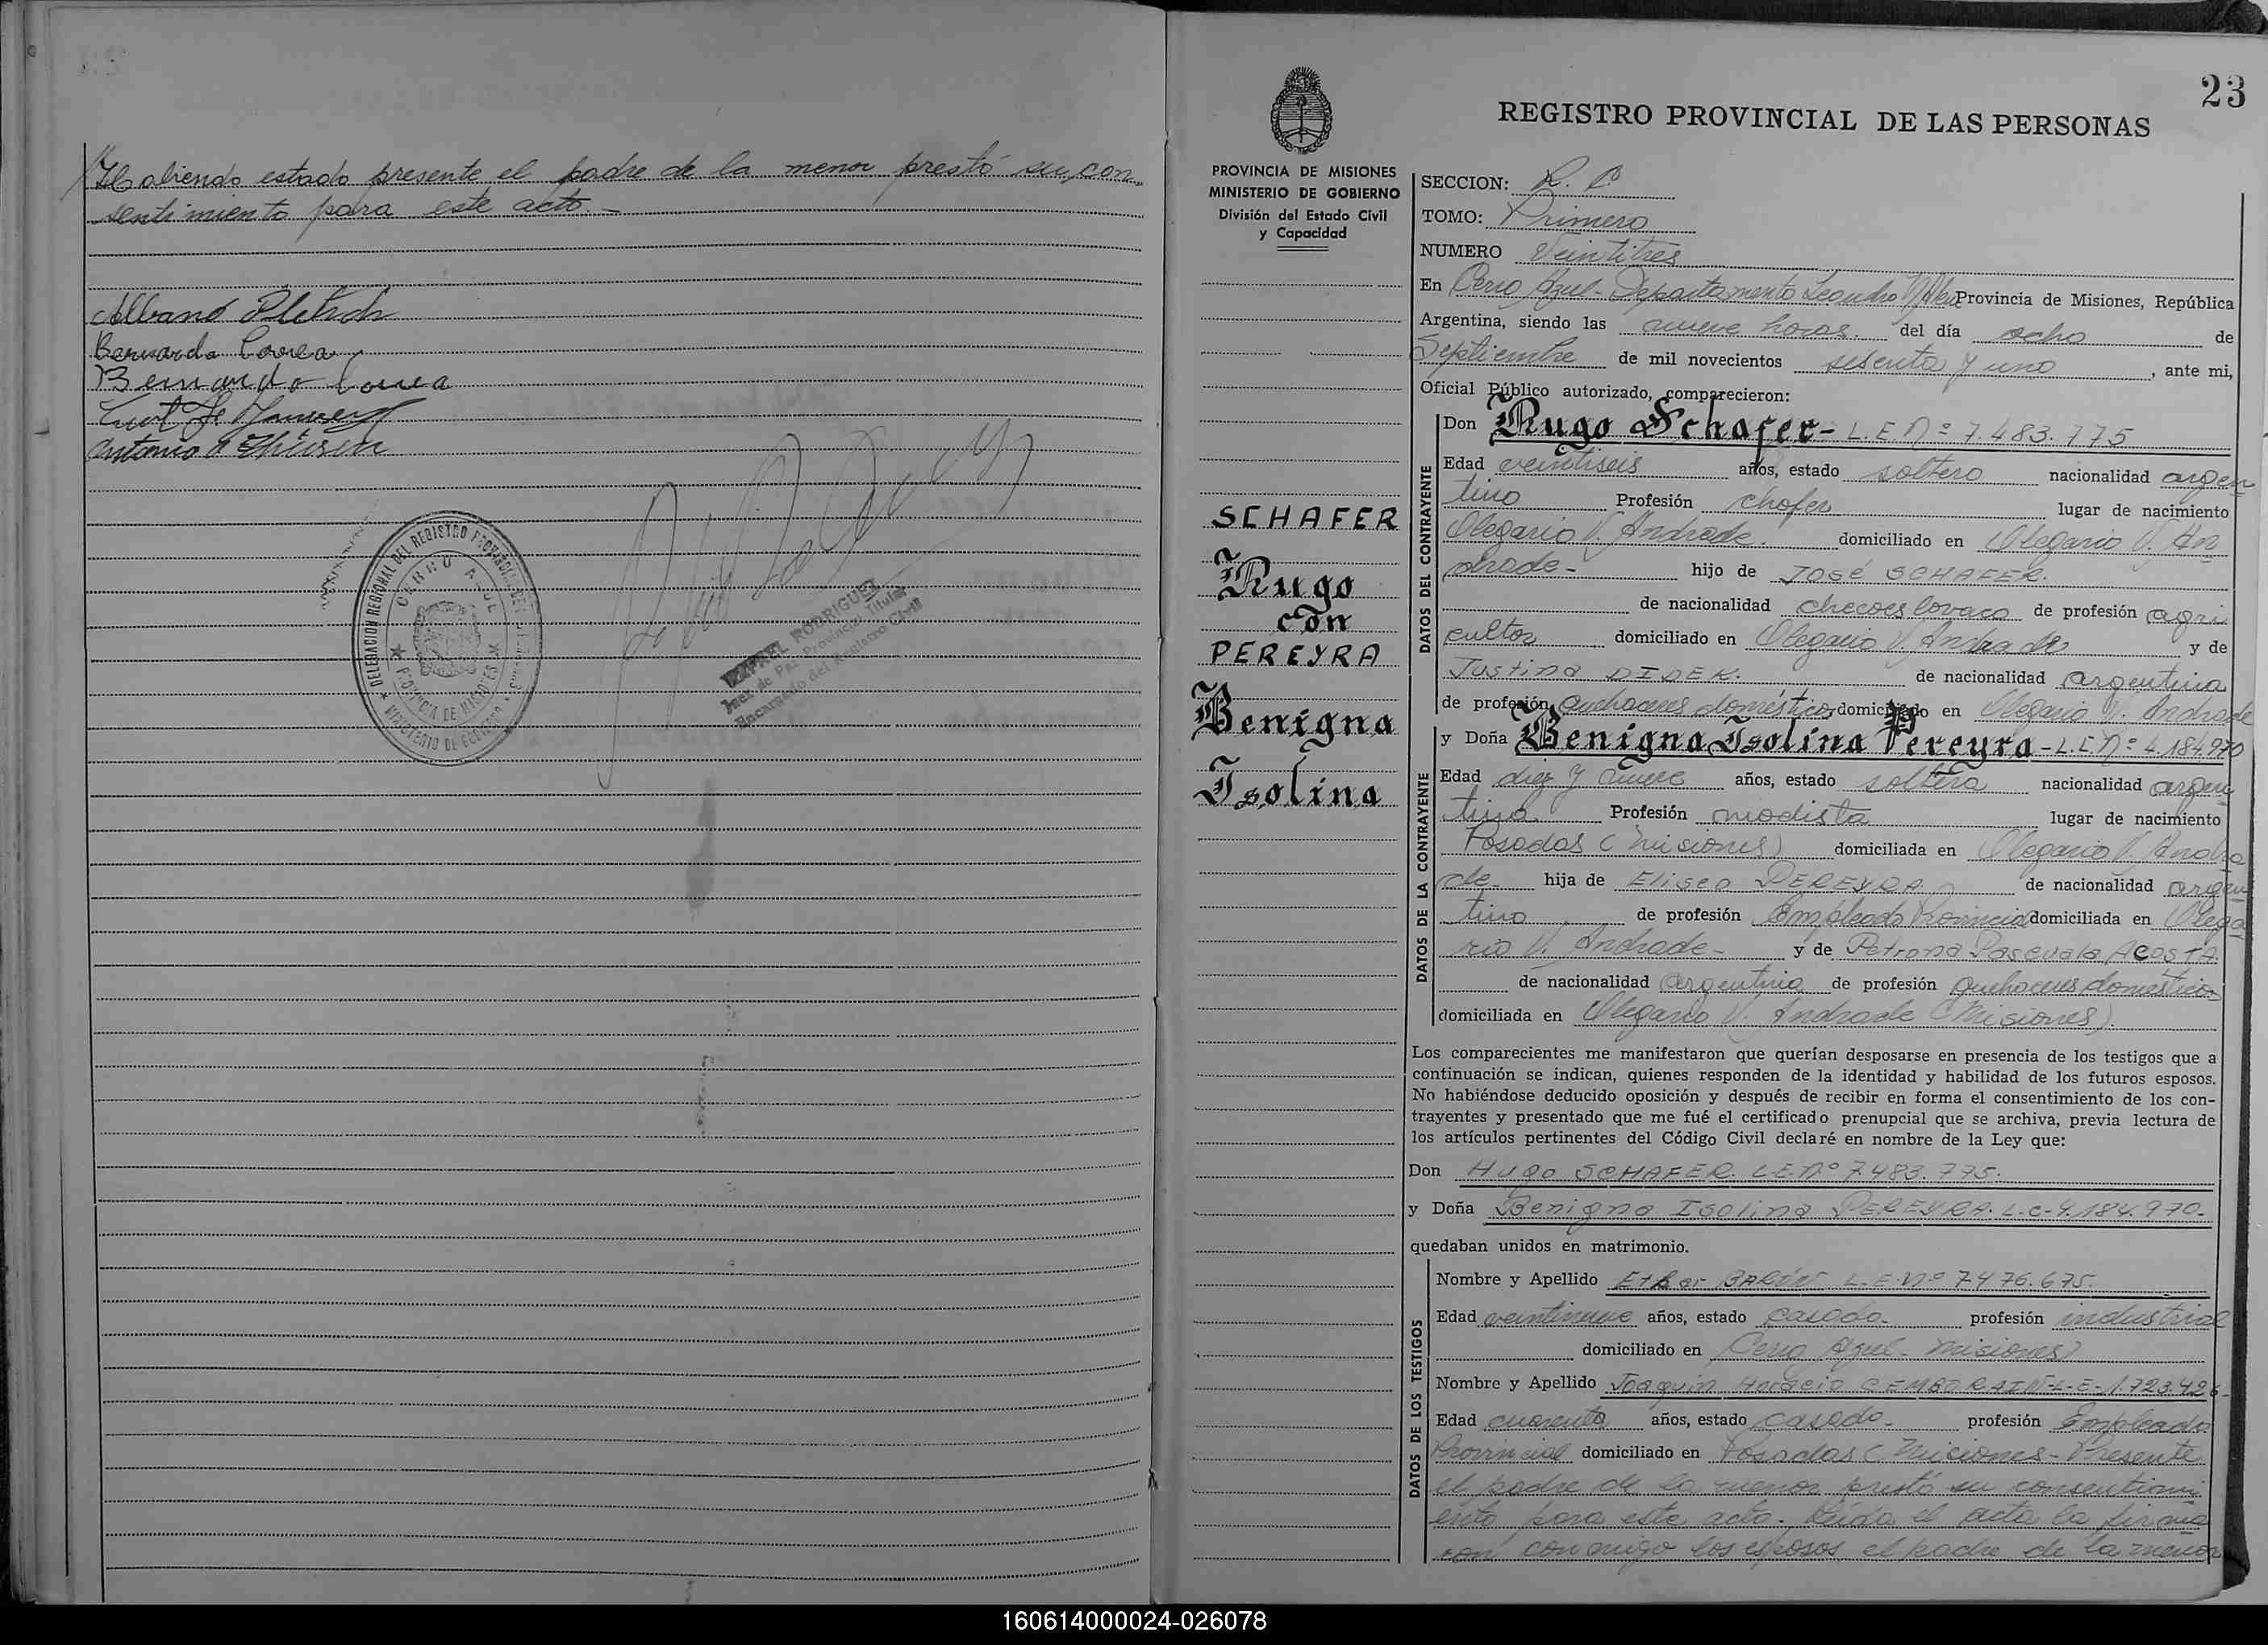 Habiendo estado presente el padre de la menor prestó su con
sentimiento para este acto.-
Bernarda Correa
Bernardo Correa
DELEGACION REGIONAL DEL REGISTRO PROVINCIAL DE LAS
CERRO AZUL
PROVINCIA DE MISIONES
MINISTERIO DE GOBIERNO
RODRIGUEZ
Juez de Paz Provincial Titular
Encargado del Registro Civil
23
REGISTRO PROVINCIAL DE LAS PERSONAS
PROVINCIA DE MISIONES
MINISTERIO DE GOBIERNO
División del Estado Civil
y Capacidad
SCHAFER
Hugo
con
PEREYRA
Benigna
Isolina
SECCION: R. C
TOMO: Primero
NUMERO Veintitres
En Cerro Azul - Departamento Leandro N. Alem Provincia de Misiones, República
Argentina, siendo las nueve horas. del día ocho de
Septiembre de mil novecientos sesenta y uno, ante mi,
Oficial Público autorizado, comparecieron:
DATOS DEL CONTRAYENTE
Don Hugo Schafer- L.E Nº 7.483.775
Edad veintiseis años, estado soltero nacionalidad argen
tino Profesión chofer lugar de nacimiento
Olegario V. Andrade. domiciliado en Olegario V. An
drade- hijo de JOSÉ SCHAFER.
de nacionalidad checoeslovaco de profesión agri
cultor domiciliado en Olegario V. Andrade y de
Justina DIDEK. de nacionalidad argentina
de profesión quehaceres domésticos domiciliado en Olegario V. Andrade
DATOS DE LA CONTRAYENTE
y Doña Benigna Isolina Pereyra - L.C Nº 4.184.970
Edad diez y nueve años, estado soltera nacionalidad argen
tina. Profesión modista lugar de nacimiento
Posadas (Misiones) domiciliada en Olegario V. Andra
de- hija de Eliseo PEREYRA de nacionalidad argen
tino de profesión Empleado Provincial domiciliada en Olega
rio V. Andrade- y de Petrona Pascuala ACOSTA.
de nacionalidad argentina de profesión quehaceres domésticos
domiciliada en Olegario V. Andrade (Misiones).
Los comparecientes me manifestaron que querían desposarse en presencia de los testigos que a
continuación se indican, quienes responden de la identidad y habilidad de los futuros esposos.
No habiéndose deducido oposición y después de recibir en forma el consentimiento de los con-
trayentes y presentado que me fué el certificado prenupcial que se archiva, previa lectura de
los artículos pertinentes del Código Civil declaré en nombre de la Ley que:
Don Hugo SCHAFER. L.E Nº 7.483.775.
y Doña Benigna Isolina PEREYRA. L.C-4.184.970.
quedaban unidos en matrimonio.
DATOS DE LOS TESTIGOS
Nombre y Apellido L.E.Nº 7.476.675.
Edad veintinueve años, estado casado. profesión industrial
domiciliado en Cerro Azul - Misiones)
Nombre y Apellido Joaquín Horacio CEMBORAIN-L-E-1.723.426-
Edad cuarenta años, estado casado. profesión Empleado
Provincial domiciliado en Posadas (Misiones - Presente
el padre de la menor prestó su consentimi
ento para este acto. Leída el acta la firma
ron conmigo los esposos, el padre de la menor
160614000024-026078